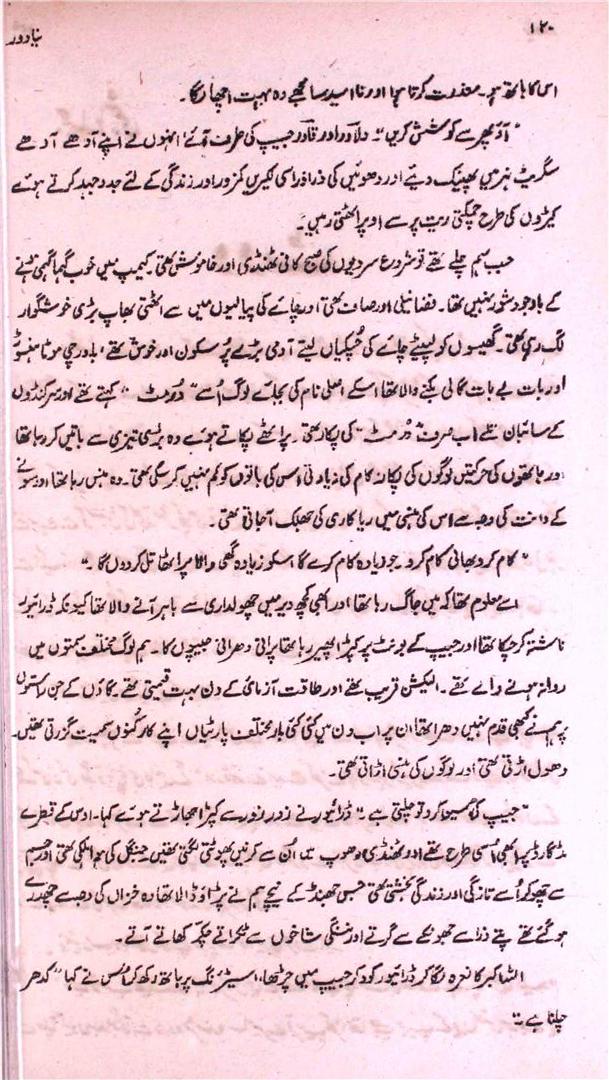 ۱۲۰
نیا دور
اس کا ہاتھ ہے۔ معذرت کرتا ہوا اور نا امید سا مجھے وہ بہت اچھا لگا۔
"آؤ پھر سے کوشش کریں" دلاور اور قادر جیپ کی طرف آئے انہوں نے اپنے آدھے آدھے
سگریٹ نہر میں پھینک دیئے اور دھوئیں کی ذرا ذرا سی لکیریں کمزور اور زندگی کے لئے جدوجہد کرتے ہوئے
کیڑوں کی طرح چمکتی ریت پر سے اوپر اٹھتی رہیں۔
جب ہم چلے تھے تو شروع سردیوں کی صبح کافی ٹھنڈی اور خاموش تھی۔ کیمپ میں خوب گہما گہمی ہونے
کے باوجود شور نہیں تھا۔ فضا نیلی اور صاف تھی اور چائے کی پیالیوں میں سے اٹھتی بھاپ بڑی خوشگوار
لگ رہی تھی۔ کھیسوں کو لپیٹے چائے کی چُسکیاں لیتے آدمی بڑے پُر سکون اور خوش تھے، باورچی موٹا ہنسوڑ
اور بات بے بات گالی بکنے والا تھا اسکے اصلی نام کی بجائے لوگ اُسے "دُرمٹ" کہتے تھے اور سرکنڈوں
کے سائبان تلے اب صرف "دُرمٹ" کی پکار تھی۔ پراٹھے پکاتے ہوئے وہ بڑی تیزی سے باتیں کر رہا تھا
اور ہاتھوں کی حرکتیں لوگوں کی پکار نہ کام کی زیادتی اس کی باتوں کو کم نہیں کر سکی تھی۔ وہ ہنس رہا تھا اور سونے
کے دانت کی وجہ سے اس کی ہنسی میں ریاکاری کی جھلک آجاتی تھی۔
"کام کرو بھائی کام کرو۔ جو زیادہ کام کرے گا اسکو زیادہ گھی والا پراٹھا تل کر دوں گا۔"
اسے معلوم تھا کہ میں جاگ رہا تھا اور ابھی کچھ دیر میں چھولداری سے باہر آنے والا تھا کیونکہ ڈرائیور
ناشتہ کر چکا تھا اور جیپ کے بونٹ پر کپڑا پھیر رہا تھا پرانی دھرانی جیپوں کا۔ ہم لوگ مختلف سمتوں میں
روانہ ہونے والے تھے۔ الیکشن قریب تھے اور طاقت آزمائی کے دن بہت قیمتی تھے۔ گاؤں کے جن راستوں
پر ہم نے کبھی قدم نہیں دھرا تھا ان پر اب دن میں کئی کئی بار مختلف پارٹیاں اپنے کارکنوں سمیت گزرتی تھیں۔
دھول اڑتی تھی اور لوگوں کی ہنسی اڑاتی تھی۔
"جیپ کی سیوا کرو تو چلتی ہے" ڈرائیور نے زور زور سے کپڑا جھاڑتے ہوئے کہا۔ اوس کے قطرے
مڈگارڈ پر ابھی اُسی طرح تھے اور ٹھنڈی دھوپ میں اُن سے کرنیں پھوٹتی لگتی تھیں جنگل کی ہوا ہلکی تھی اور جسم
سے چھو کر اُسے تازگی اور زندگی بخشتی تھی جس جھنڈ کے نیچے ہم نے پڑاؤ ڈالا تھا وہ خزاں کی وجہ سے چھدرے
ہو گئے تھے پتے ذرا سے جھونکے سے گرتے اور ننگی شاخوں سے ٹکراتے چکر کھاتے آتے۔
اللہ اکبر کا نعرہ لگا کر ڈرائیور کود کر جیپ میں چڑھا، اسیٹرنگ پر ہاتھ رکھ کر اُس نے کہا "کدھر
چلنا ہے۔"